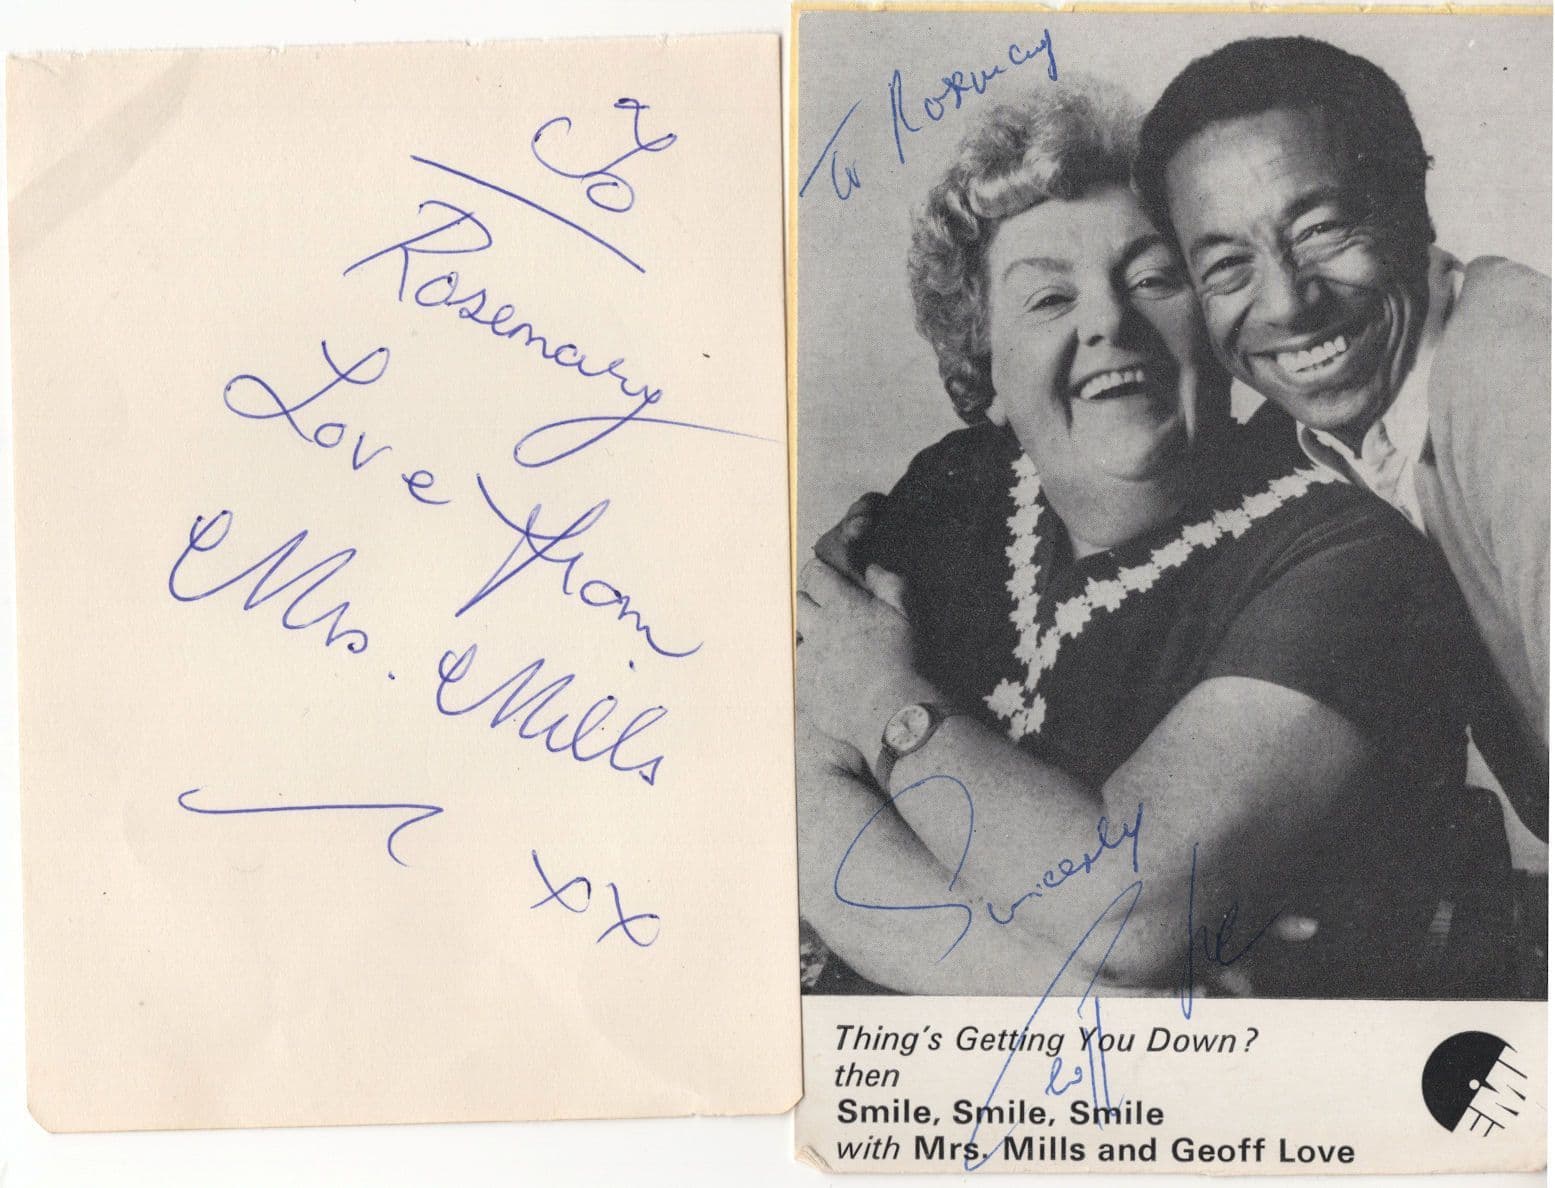 To
Rosemary
Love from
Mrs. Mills
xx
To Rosemary
Sincerely
Geoff Love
Thing's Getting You Down?
then
Smile, Smile, Smile
with Mrs. Mills and Geoff Love
EMI